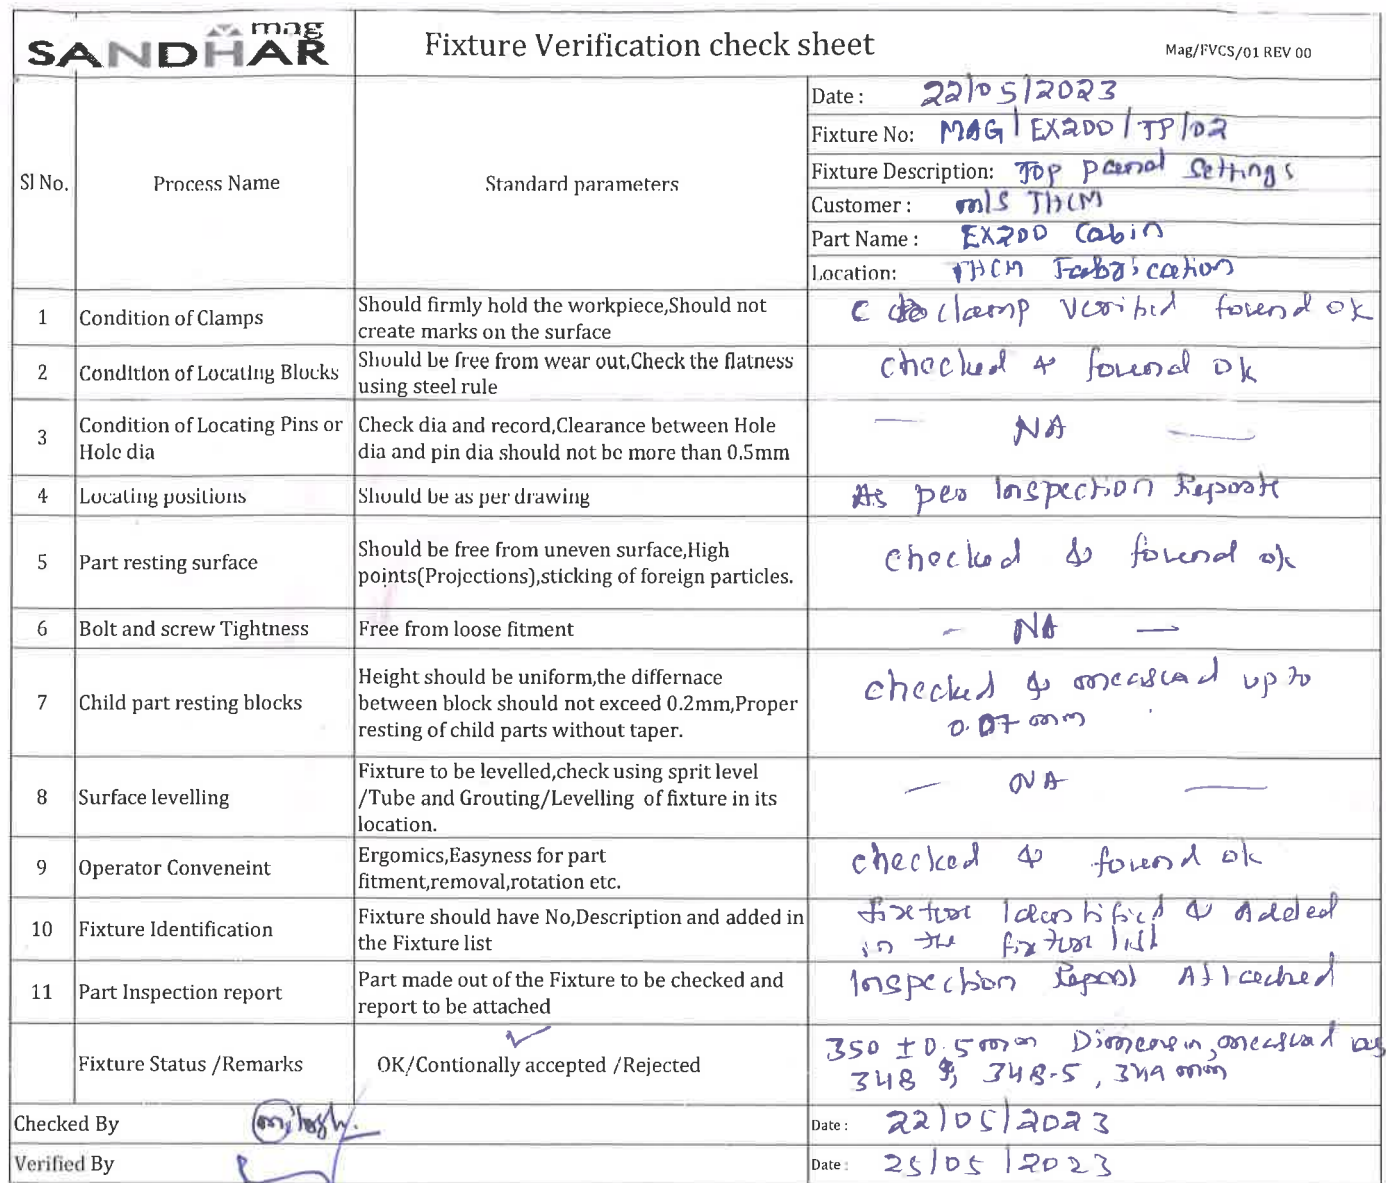 mag
SANDHAR
Fixture Verification check sheet
Mag/FVCS/01 REV 00
Sl No.
Process Name
Standard parameters
Date : 22/05/2023
Fixture No: MAG/EX200/TP/02
Fixture Description: Top panal Settings
Customer : M/S THCM
Part Name : EX200 Cabin
Location: THCM Fabrication
1
Condition of Clamps
Should firmly hold the workpiece,Should not
create marks on the surface
C clamp Verified found ok
2
Condition of Locating Blocks
Should be free from wear out,Check the flatness
using steel rule
checked & found ok
3
Condition of Locating Pins or
Hole dia
Check dia and record,Clearance between Hole
dia and pin dia should not be more than 0.5mm
— NA —
4
Locating positions
Should be as per drawing
As per Inspection Reporte
5
Part resting surface
Should be free from uneven surface,High
points(Projections),sticking of foreign particles.
checked & found ok
6
Bolt and screw Tightness
Free from loose fitment
- NA —
7
Child part resting blocks
Height should be uniform,the differnace
between block should not exceed 0.2mm,Proper
resting of child parts without taper.
checked & measured up to
0.07 mm
8
Surface levelling
Fixture to be levelled,check using sprit level
/Tube and Grouting/Levelling of fixture in its
location.
— NA —
9
Operator Conveneint
Ergomics,Easyness for part
fitment,removal,rotation etc.
checked & found ok
10
Fixture Identification
Fixture should have No,Description and added in
the Fixture list
fixture Identified & Added
in the fixture list
11
Part Inspection report
Part made out of the Fixture to be checked and
report to be attached
Inspection Report Attached
Fixture Status /Remarks
OK/Contionally accepted /Rejected
350 ±0.5mm Dimension, measured as
348, 348.5, 349 mm
Checked By
Date : 22/05/2023
Verified By
Date : 25/05/2023